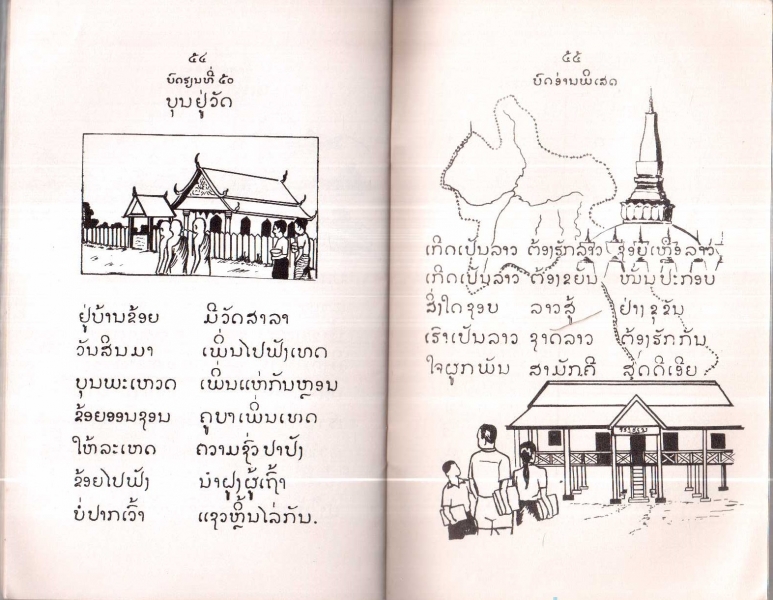 ໕໔
ບົດຮຽນທີ່ ໕໐
ບຸນຢູ່ວັດ
ຢູ່ບ້ານຂ້ອຍ ມີວັດສາລາ
ວັນສິນມາ ເພິ່ນໄປຟັງເທດ
ບຸນພະເຫວດ ເພິ່ນແຫ່ກັນຫຼອນ
ຂ້ອຍອອນຊອນ ຄູບາເພິ່ນເທດ
ໃຫ້ລະເຫດ ຄວາມຊົ່ວປາປັງ
ຂ້ອຍໄປຟັງ ນຳຝູງຜູ້ເຖົ້າ
ບໍ່ປາກເວົ້າ ແຊວຫຼິ້ນໄລ່ກັນ.
໕໕
ບົດອ່ານພິເສດ
ເກີດເປັນລາວ ຕ້ອງຮັກລາວ ຊອຍເຫຼືອລາວ
ເກີດເປັນລາວ ຕ້ອງຂຍັນ ໝັ່ນປະກອບ
ສິ່ງໃດຊອບ ລາວສູ້ ຢ່າງຂຸຂັນ
ເຮົາເປັນລາວ ຊາດລາວ ຕ້ອງຮັກກັນ
ໃຈຜູກພັນ ສາມັກຄີ ສຸດດີເອີຍ